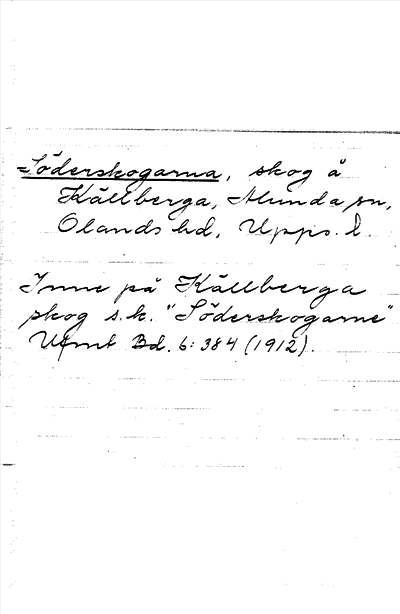 =Söderskogarna, skog å
Källberga, Alunda sn,
Olands hd, Upps. l.
Inne på Källberga
skog s.k. "Söderskogarne"
Ufmt Bd. 6:384 (1912).